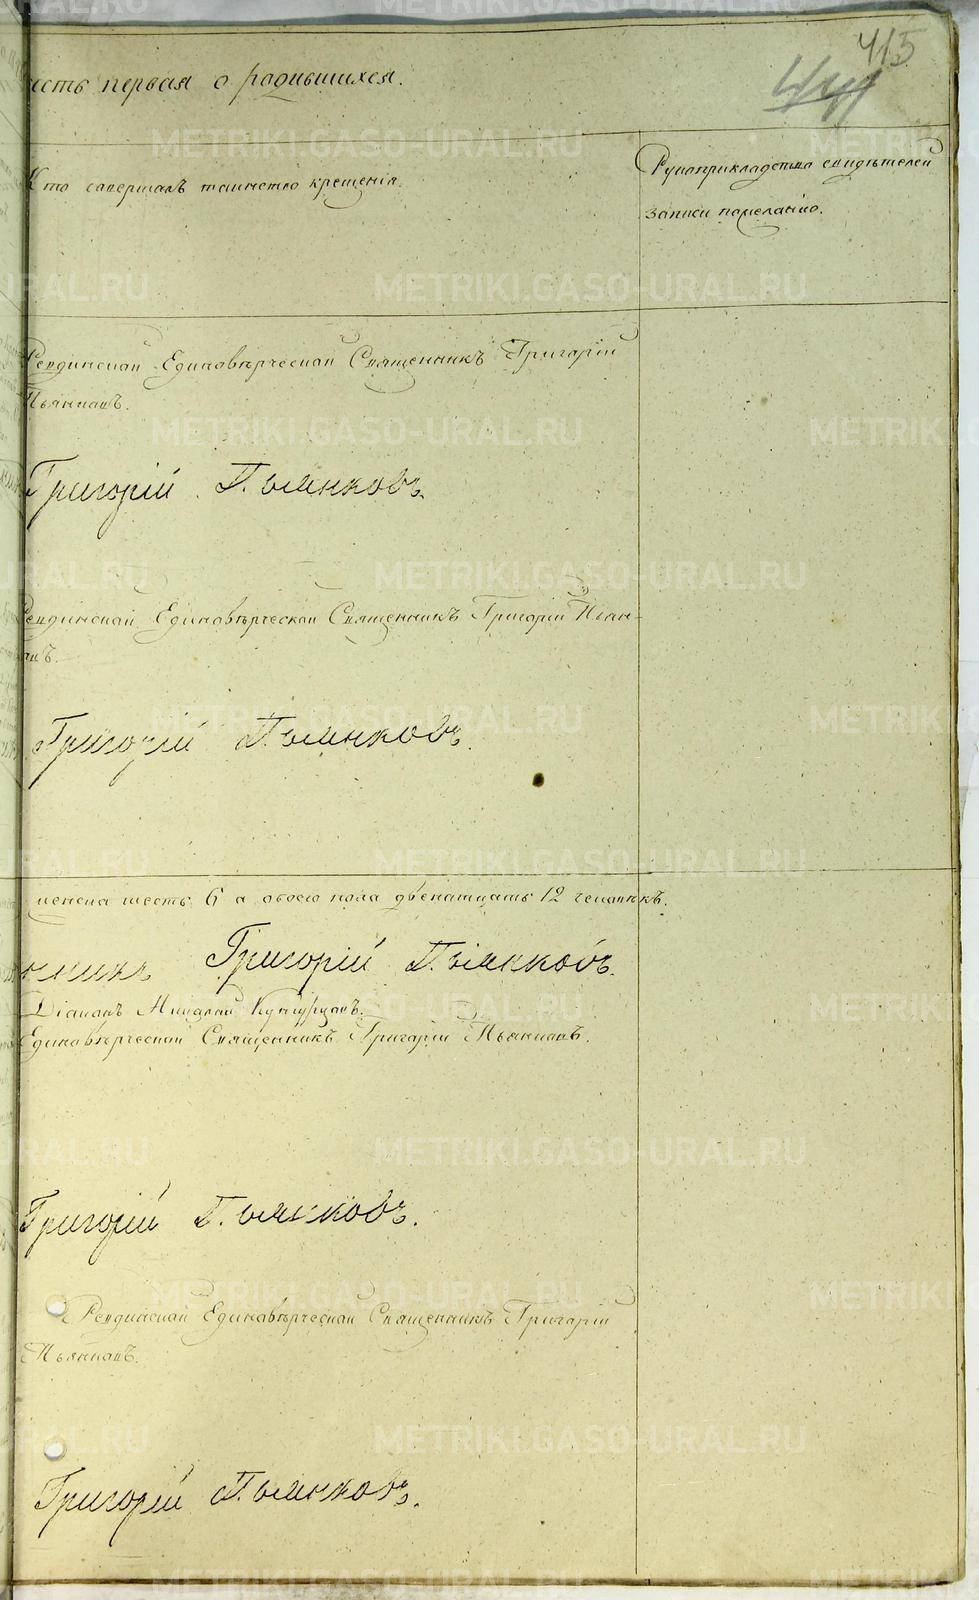 415
часть первая о родившихся.
Кто совершалъ таинство крещенія.
Рукоприкладство свидѣтелей
записи по желанію.
Ревдинской Единовѣрческой Священникъ Григорій
Пьянковъ.
Григорій Пьянковъ.
Ревдинской Единовѣрческой Священникъ Григорій Пьян-
ковъ.
Григорій Пьянковъ.
женска шесть 6 а обоего пола двенатцать 12 человѣкъ.
Григорій Пьянковъ.
Діаконъ Николай
Единовѣрческой Священникъ Григорій Пьянковъ.
Григорій Пьянковъ.
Ревдинской Единовѣрческой Священникъ Григорій
Пьянковъ.
Григорій Пьянковъ.
METRIKI.GASO-URAL.RU